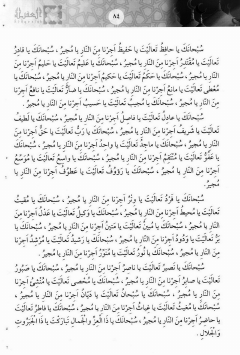 ٨٤
سُبْحَانَكَ يَا حَافِظُ تَعَالَيْتَ يَا حَفِيظُ أَجِرْنَا مِنَ النَّارِ يَا مُجِيرُ ، سُبْحَانَكَ يَا قَادِرُ
تَعَالَيْتَ يَا مُقْتَدِرُ أَجِرْنَا مِنَ النَّارِ يَا مُجِيرُ ، سُبْحَانَكَ يَا عَلِيمُ تَعَالَيْتَ يَا حَلِيمُ أَجِرْنَا مِنَ
النَّارِ يَا مُجِيرُ ، سُبْحَانَكَ يَا حَكَمُ تَعَالَيْتَ يَا حَكِيمُ أَجِرْنَا مِنَ النَّارِ يَا مُجِيرُ ، سُبْحَانَكَ يَا
مُعْطِي تَعَالَيْتَ يَا مَانِعُ أَجِرْنَا مِنَ النَّارِ يَا مُجِيرُ ، سُبْحَانَكَ يَا ضَارُّ تَعَالَيْتَ يَا نَافِعُ أَجِرْنَا
مِنَ النَّارِ يَا مُجِيرُ ، سُبْحَانَكَ يَا مُجِيبُ تَعَالَيْتَ يَا حَسِيبُ أَجِرْنَا مِنَ النَّارِ يَا مُجِيرُ .
سُبْحَانَكَ يَا عَادِلُ تَعَالَيْتَ يَا فَاصِلُ أَجِرْنَا مِنَ النَّارِ يَا مُجِيرُ ، سُبْحَانَكَ يَا لَطِيفُ
تَعَالَيْتَ يَا شَرِيفُ أَجِرْنَا مِنَ النَّارِ يَا مُجِيرُ ، سُبْحَانَكَ يَا رَبُّ تَعَالَيْتَ يَا حَقُّ أَجِرْنَا مِنَ
النَّارِ يَا مُجِيرُ ، سُبْحَانَكَ يَا مَاجِدُ تَعَالَيْتَ يَا وَاحِدُ أَجِرْنَا مِنَ النَّارِ يَا مُجِيرُ ، سُبْحَانَكَ
يَا عَفُوُّ تَعَالَيْتَ يَا مُنْتَقِمُ أَجِرْنَا مِنَ النَّارِ يَا مُجِيرُ ، سُبْحَانَكَ يَا وَاسِعُ تَعَالَيْتَ يَا مُوَسِّعُ
أَجِرْنَا مِنَ النَّارِ يَا مُجِيرُ ، سُبْحَانَكَ يَا رَؤُوفُ تَعَالَيْتَ يَا عَطُوفُ أَجِرْنَا مِنَ النَّارِ يَا
مُجِيرُ .
سُبْحَانَكَ يَا فَرْدُ تَعَالَيْتَ يَا وِتْرُ أَجِرْنَا مِنَ النَّارِ يَا مُجِيرُ ، سُبْحَانَكَ يَا مُقِيتُ
تَعَالَيْتَ يَا مُحِيطُ أَجِرْنَا مِنَ النَّارِ يَا مُجِيرُ ، سُبْحَانَكَ يَا وَكِيلُ تَعَالَيْتَ يَا عَدْلُ أَجِرْنَا مِنَ
النَّارِ يَا مُجِيرُ ، سُبْحَانَكَ يَا مُبِينُ تَعَالَيْتَ يَا مَتِينُ أَجِرْنَا مِنَ النَّارِ يَا مُجِيرُ ، سُبْحَانَكَ يَا
بَرُّ تَعَالَيْتَ يَا وَدُودُ أَجِرْنَا مِنَ النَّارِ يَا مُجِيرُ ، سُبْحَانَكَ يَا رَشِيدُ تَعَالَيْتَ يَا مُرْشِدُ أَجِرْنَا
مِنَ النَّارِ يَا مُجِيرُ ، سُبْحَانَكَ يَا نُورُ تَعَالَيْتَ يَا مُنَوِّرُ أَجِرْنَا مِنَ النَّارِ يَا مُجِيرُ .
سُبْحَانَكَ يَا نَصِيرُ تَعَالَيْتَ يَا نَاصِرُ أَجِرْنَا مِنَ النَّارِ يَا مُجِيرُ ، سُبْحَانَكَ يَا صَبُورُ
تَعَالَيْتَ يَا صَابِرُ أَجِرْنَا مِنَ النَّارِ يَا مُجِيرُ ، سُبْحَانَكَ يَا مُحْصِي تَعَالَيْتَ يَا مُنْشِئُ أَجِرْنَا
مِنَ النَّارِ يَا مُجِيرُ ، سُبْحَانَكَ يَا سُبْحَانُ تَعَالَيْتَ يَا دَيَّانُ أَجِرْنَا مِنَ النَّارِ يَا مُجِيرُ ،
سُبْحَانَكَ يَا مُغِيثُ تَعَالَيْتَ يَا غِيَاثُ أَجِرْنَا مِنَ النَّارِ يَا مُجِيرُ ، سُبْحَانَكَ يَا فَاطِرُ تَعَالَيْتَ
يَا حَاضِرُ أَجِرْنَا مِنَ النَّارِ يَا مُجِيرُ ، سُبْحَانَكَ يَا ذَا الْعِزِّ وَالْجَمَالِ تَبَارَكْتَ يَا ذَا الْجَبَرُوتِ
وَالْجَلَالِ .